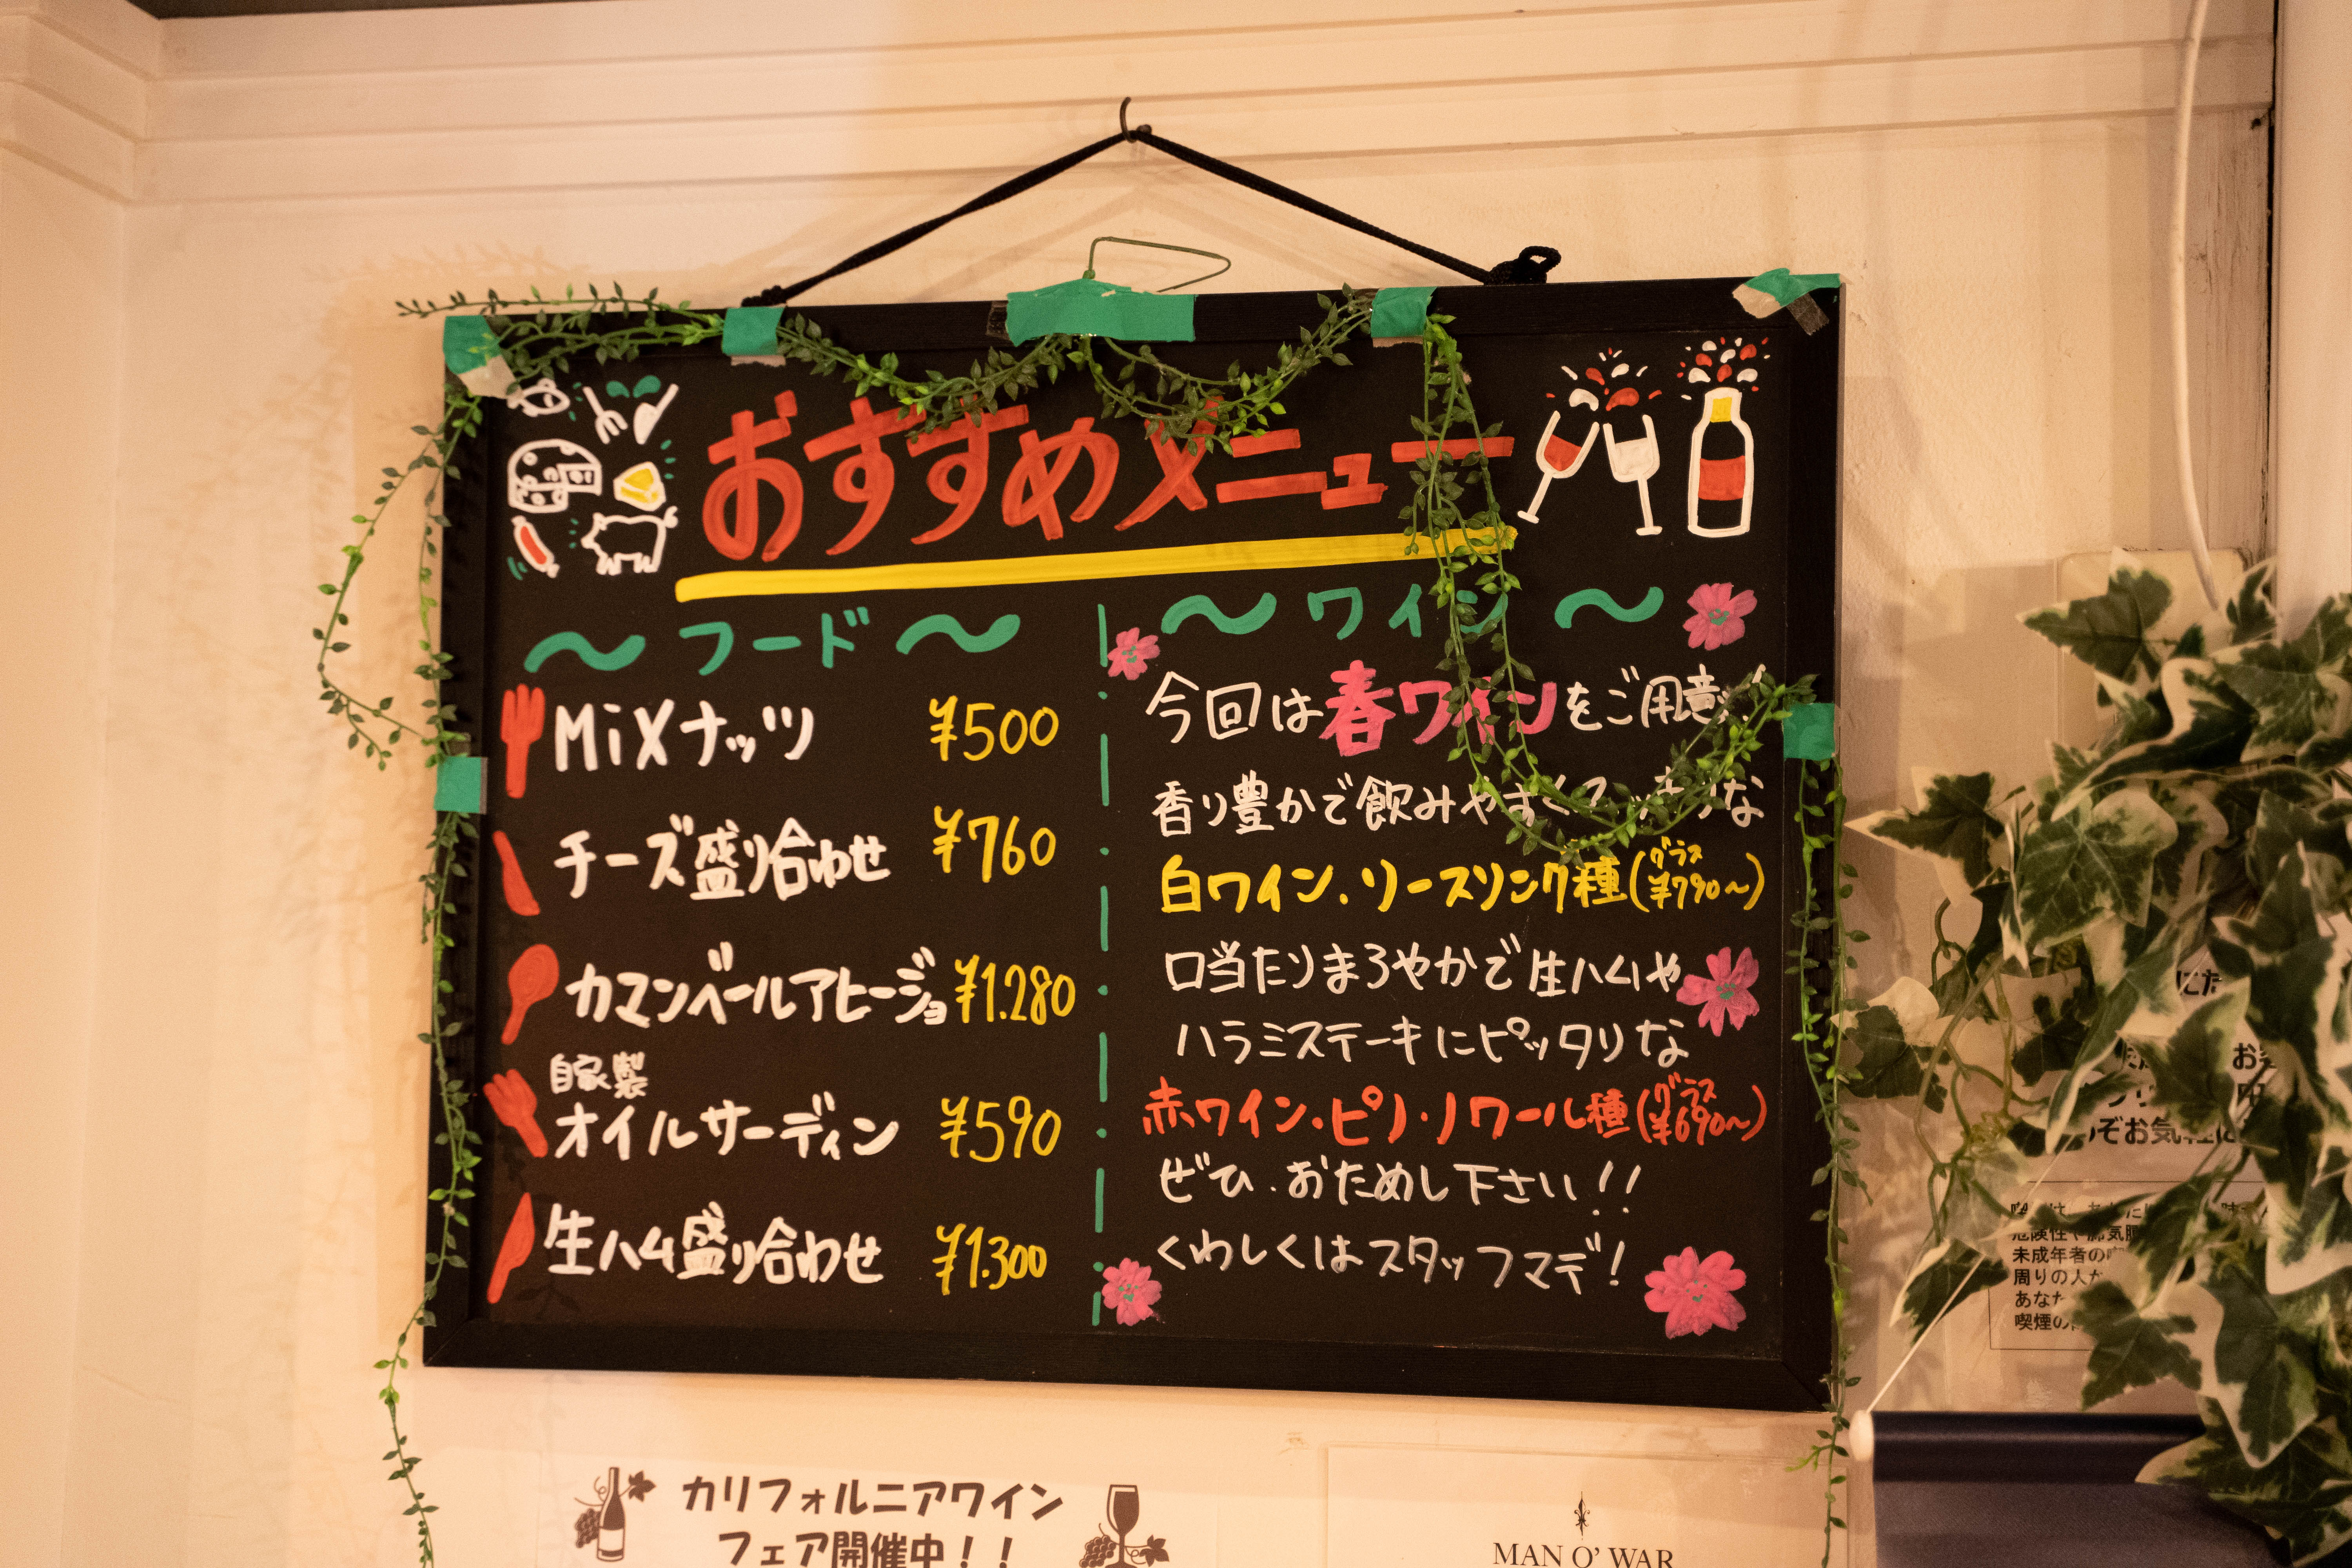 おすすめメニュー
〜 フード 〜
MiXナッツ ¥500
チーズ盛り合わせ ¥760
カマンベールアヒージョ ¥1.280
自家製
オイルサーディン ¥590
生ハム盛り合わせ ¥1.300
〜 ワイン 〜
今回は春ワインをご用意!
香り豊かで飲みやすく な
白ワイン・リースリング種(グラス ¥790〜)
口当たりまろやかで生ハムや
ハラミステーキにピッタリな
赤ワイン・ピノ・ノワール種(グラス ¥690〜)
ぜひ、おためし下さい!!
くわしくはスタッフマデ!
カリフォルニアワイン
フェア開催中!!
MAN O' WAR
にた
お
ぞお気軽に
危険性や肺気腫
未成年者の
周りの人か
あなた
喫煙の